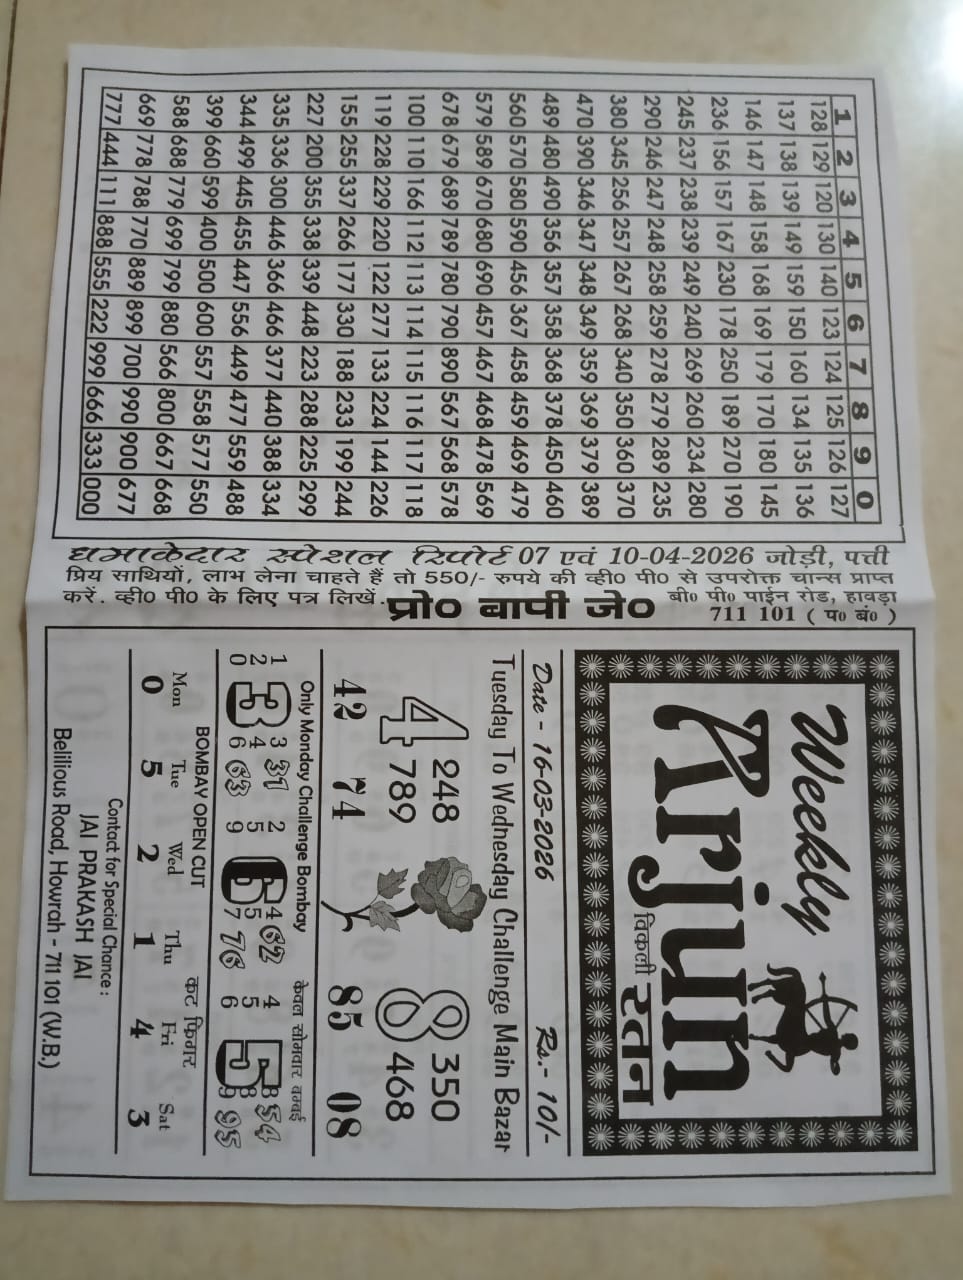 1 2 3 4 5 6 7 8 9 0
128 129 120 130 140 123 124 125 126 127
137 138 139 149 159 150 160 134 135 136
146 147 148 158 168 169 179 170 180 145
236 156 157 167 230 178 250 189 270 190
245 237 238 239 249 240 269 260 234 280
290 246 247 248 258 259 278 279 289 235
380 345 256 257 267 268 340 350 360 370
470 390 346 347 348 349 359 369 379 389
489 480 490 356 357 358 368 378 450 460
560 570 580 590 456 367 458 459 469 479
579 589 670 680 690 457 467 468 478 569
678 679 689 789 780 790 890 567 568 578
100 110 166 112 113 114 115 116 117 118
119 228 229 220 122 277 133 224 144 226
155 255 337 266 177 330 188 233 199 244
227 200 355 338 339 448 223 288 225 299
335 336 300 446 366 466 377 440 388 334
344 499 445 455 447 556 449 477 559 488
399 660 599 400 500 600 557 558 577 550
588 688 779 699 799 880 566 800 667 668
669 778 788 770 889 899 700 990 900 677
777 444 111 888 555 222 999 666 333 000
धमाकेदार स्पेशल रिपोर्ट 07 एवं 10-04-2026 जोड़ी, पत्ती
प्रिय साथियों, लाभ लेना चाहते हैं तो 550/- रुपये की व्ही० पी० से उपरोक्त चान्स प्राप्त
करें. व्ही० पी० के लिए पत्र लिखें. प्रो० बापी जे० बी० पी० पाईन रोड, हावड़ा
711 101 ( प० बं० )
Weekly
Arjun
विकली रतन
Date - 16-03-2026 Rs.- 10/-
Tuesday To Wednesday Challenge Main Bazar
4 248 8 350
789 468
42 74 85 08
Only Monday Challenge Bombay केवल सोमवार बम्बई
1 3 31 2 462 4 8 54
2 3 4 5 6 5 5 5
0 6 63 9 7 76 6 9 95
BOMBAY OPEN CUT कट फिगर
Mon Tue Wed Thu Fri Sat
0 5 2 1 4 3
Contact for Special Chance :
JAI PRAKASH JAI
Belilious Road, Howrah - 711 101 (W.B.)